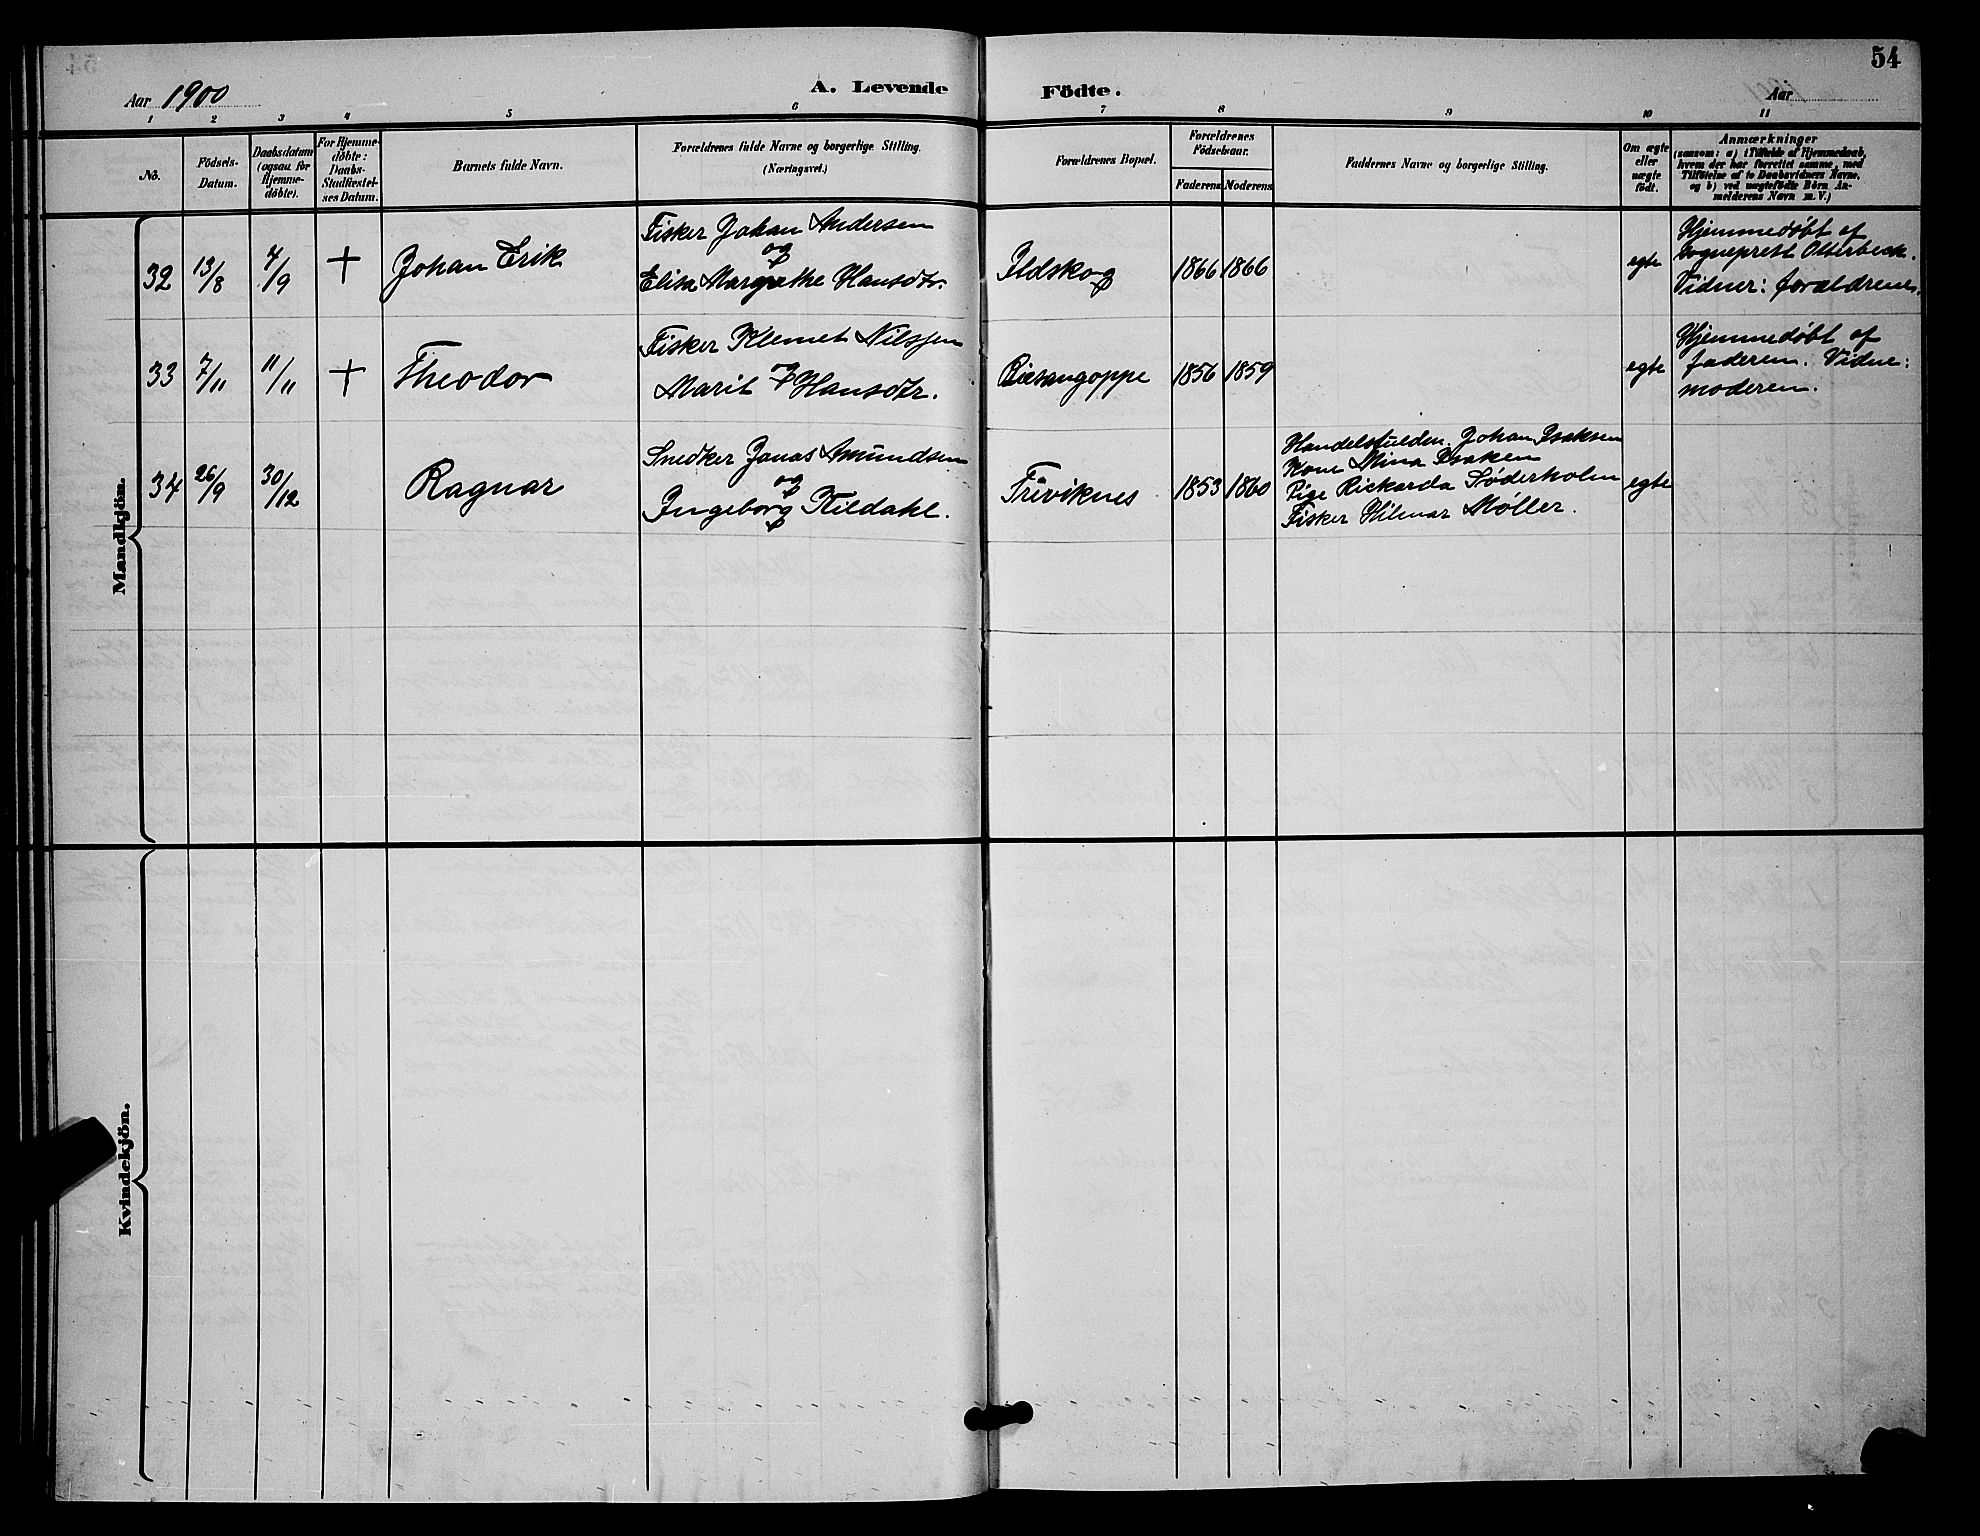 54
Aar 1900
A. Levende Födte.
Aar
1 2 3 4 5 6 7 8 9 10 11
No.
Födsels-
Datum.
Daabsdatum
(ogsaa for
Hjemme-
døbte).
For Hjemme-
døbte:
Daabs-
Stadfæstel-
ses Datum.
Barnets fulde Navn.
Forældrenes fulde Navne og borgerlige Stilling.
(Næringsvei.)
Forældrenes Bopæl.
Forældrenes
Födselsaar.
Faderens Moderens
Faddernes Navne og borgerlige Stilling.
Om ægte
eller
uægte
födt.
Anmærkninger
(saasom: a) i Tilfælde af Hjemmedaab,
hvem der har forrettet samme, med
Tilföielse af to Daabsvidners Navne,
og b) ved uægtefödte Börn An-
melderens Navn m. V.)
Mandkjön.
32 13/8 4/9 + Johan Erik
Fisker Johan Andersen
og
Elisa Margrethe Hansdtr.
Ildskog 1866 1866
egte
Hjemmedøbt af
Sogneprest Otterbeck.
Vidner: forældrene.
33 7/11 11/11 + Theodor
Fisker Klemet Nilssen
og
Marit Hansdtr.
1856 1859
egte
Hjemmedøbt af
faderen. Vidne:
moderen.
34 26/9 30/12 Ragnar
Snedker Jonas Amundsen
og
Ingeborg Kildahl.
1853 1860
Johan Isaksen
Kone Mina Isaksen
Pige Rickarda Søderholm
Fisker Hilmar Møller.
egte
Kvindekjön.